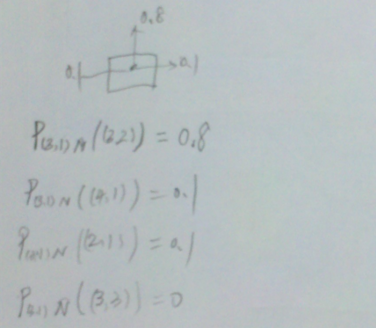 0.8
0.1 0.1
P(3,1)N((3,2)) = 0.8
P(3,1)N((4,1)) = 0.1
P(3,1)N((2,1)) = 0.1
P(3,1)N((3,3)) = 0